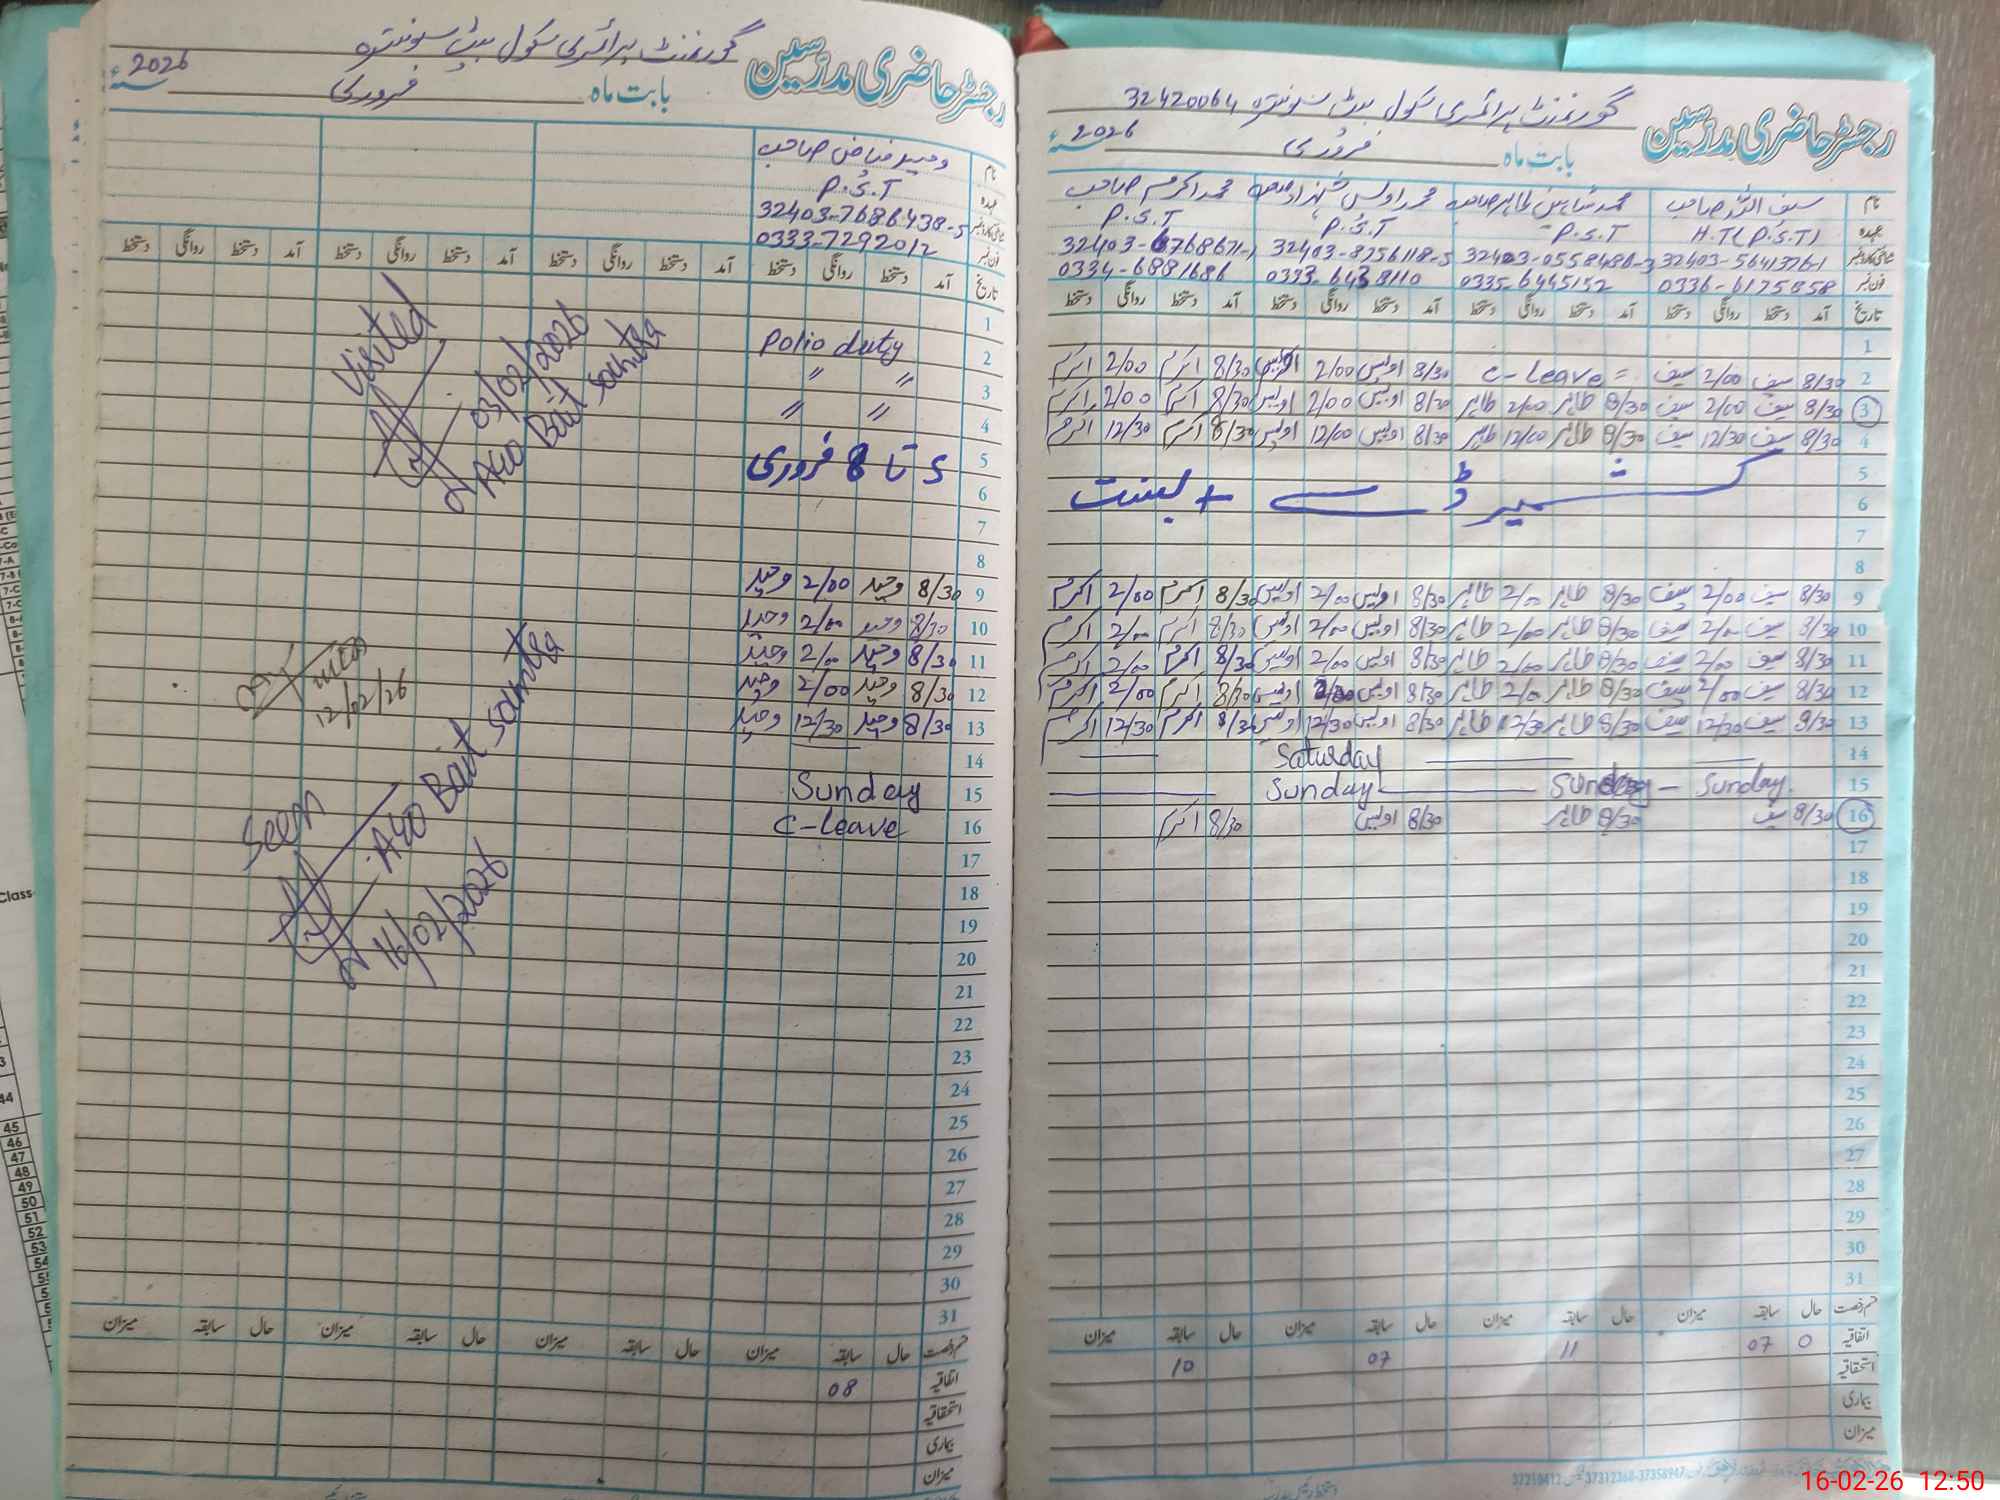 رجسٹر حاضری مدرسین گورنمنٹ پرائمری سکول بیٹ سونترہ
بابت ماہ فروری 2026ء
نام وحید فیاض صاحب
عہدہ P.S.T
شناختی کارڈ نمبر 32403-7686438-5
فون نمبر 0333-7292012
تاریخ آمد دستخط روانگی دستخط آمد دستخط روانگی دستخط آمد دستخط روانگی دستخط آمد دستخط روانگی دستخط
1
2 Polio duty
3 〃 〃
4 〃 〃
5 5 تا 8 فروری
6
7
8
9 8/30 وحید 2/00 وحید
10 8/30 وحید 2/00 وحید
11 8/30 وحید 2/00 وحید
12 8/30 وحید 2/00 وحید
13 8/30 وحید 12/30 وحید
14
15 Sunday
16 C-leave
17
18
19
20
21
22
23
24
25
26
27
28
29
30
31
Visited
03/02/2026
AEO Bait Sountra
12/02/26
Seen
AEO Bait Sountra
16/02/2026
قسم رخصت حال سابقہ میزان حال سابقہ میزان حال سابقہ میزان حال سابقہ میزان
اتفاقیہ 08
استحقاقیہ
بیماری
میزان
رجسٹر حاضری مدرسین گورنمنٹ پرائمری سکول بیٹ سونترہ 32420064
بابت ماہ فروری 2026ء
نام سیف اللہ صاحب محمد شاہین طاہر صاحب محمد اویس شہزاد صاحب محمد اکرم صاحب
عہدہ H.T(P.S.T) P.S.T P.S.T P.S.T
شناختی کارڈ نمبر 32403-5641376-1 32403-0558486-3 32403-8756118-5 32403-6768671-1
فون نمبر 0336-6175858 0335-6445152 0333-6438110 0334-6881686
تاریخ آمد دستخط روانگی دستخط آمد دستخط روانگی دستخط آمد دستخط روانگی دستخط آمد دستخط روانگی دستخط
1
2 8/30 سیف 2/00 سیف C-leave 8/30 اویس 2/00 اویس 8/30 اکرم 2/00 اکرم
3 8/30 سیف 2/00 سیف 8/30 طاہر 2/00 طاہر 8/30 اویس 2/00 اویس 8/30 اکرم 2/00 اکرم
4 8/30 سیف 12/30 سیف 8/30 طاہر 12/00 طاہر 8/30 اویس 12/00 اویس 8/30 اکرم 12/30 اکرم
5
6 کشمیر ڈے + بسنت
7
8
9 8/30 سیف 2/00 سیف 8/30 طاہر 2/00 طاہر 8/30 اویس 2/00 اویس 8/30 اکرم 2/00 اکرم
10 8/30 سیف 2/00 سیف 8/30 طاہر 2/00 طاہر 8/30 اویس 2/00 اویس 8/30 اکرم 2/00 اکرم
11 8/30 سیف 2/00 سیف 8/30 طاہر 2/00 طاہر 8/30 اویس 2/00 اویس 8/30 اکرم 2/00 اکرم
12 8/30 سیف 2/00 سیف 8/30 طاہر 2/00 طاہر 8/30 اویس 2/00 اویس 8/30 اکرم 2/00 اکرم
13 8/30 سیف 12/30 سیف 8/30 طاہر 12/30 طاہر 8/30 اویس 12/30 اویس 8/30 اکرم 12/30 اکرم
14 Saturday
15 Sunday Sunday Sunday
16 8/30 سیف 8/30 طاہر 8/30 اویس 8/30 اکرم
17
18
19
20
21
22
23
24
25
26
27
28
29
30
31
قسم رخصت حال سابقہ میزان حال سابقہ میزان حال سابقہ میزان حال سابقہ میزان
اتفاقیہ 0 07 11 07 10
استحقاقیہ
بیماری
میزان
16-02-26 12:50